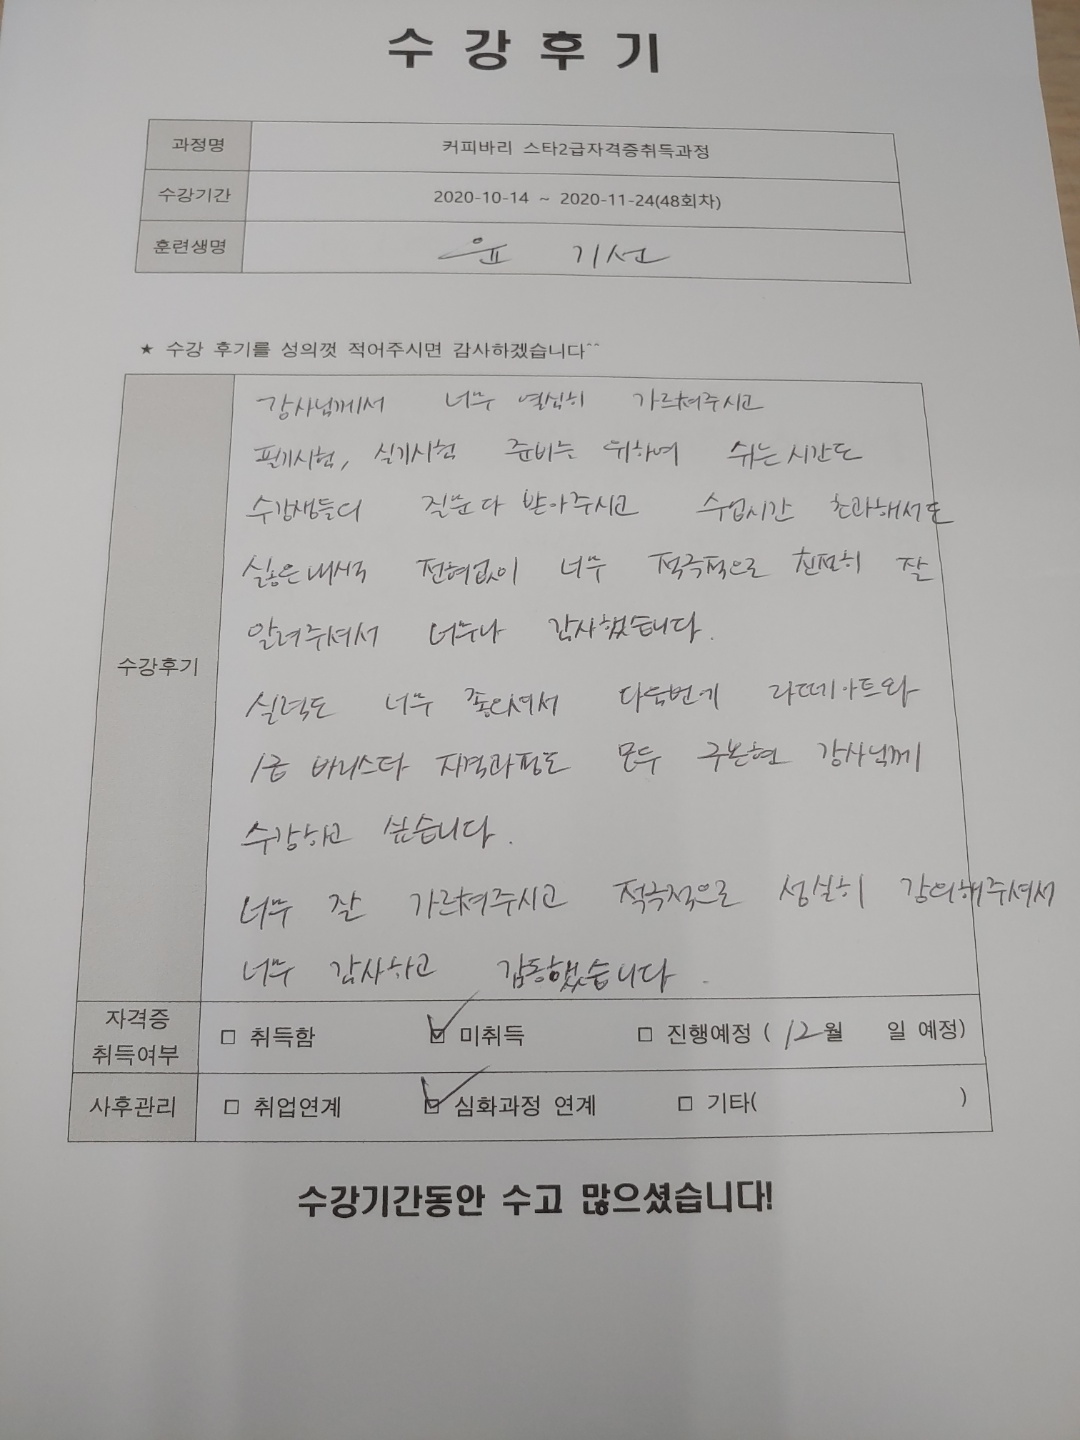 수 강 후 기
과정명 커피바리 스타2급자격증취득과정
수강기간 2020-10-14 ~ 2020-11-24(48회차)
훈련생명 윤 기선
★ 수강 후기를 성의껏 적어주시면 감사하겠습니다^^
수강후기
강사님께서 너무 열심히 가르쳐주시고
필기시험, 실기시험 준비를 위하여 쉬는시간도
수강생들의 질문다 받아주시고 수업시간 초과해서도
싫은내색 전혀없이 너무 적극적으로 친절히 잘
알려주셔서 너무나 감사했습니다.
실력도 너무 좋으셔서 다음번에 라떼아트와
1급 바리스타 자격과정도 모두 구본현 강사님께
수강하고 싶습니다.
너무 잘 가르쳐주시고 적극적으로 성실히 강의해주셔서
너무 감사하고 감동했습니다.
자격증 취득여부 □ 취득함 ☑ 미취득 □ 진행예정 ( 12월 일 예정)
사후관리 □ 취업연계 ☑ 심화과정 연계 □ 기타( )
수강기간동안 수고 많으셨습니다!